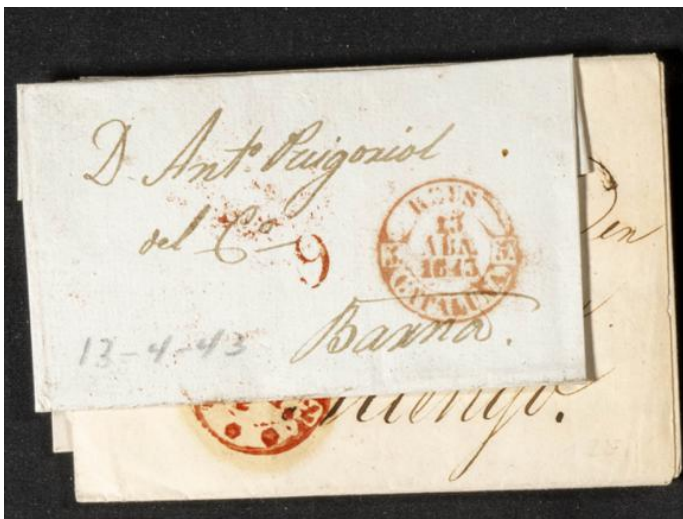 D. Antº Puigoriol
del Cº
9
REUS
13
ABR
1843
CATALUÑA
Barna.
13-4-43